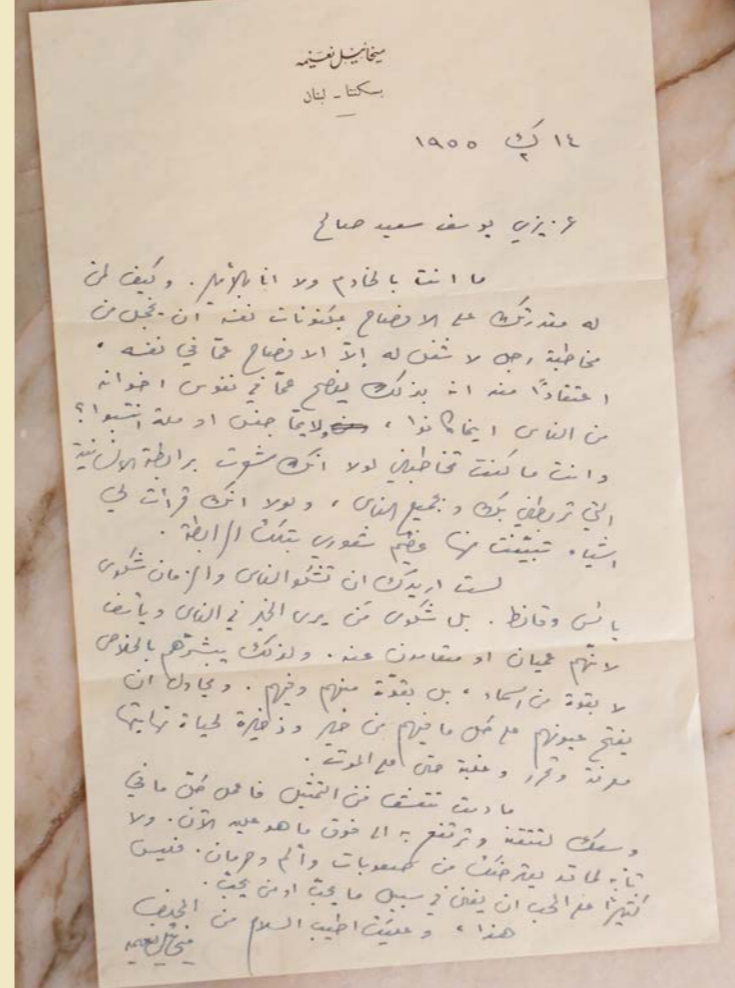 ميخائيل نعيمه
بسكنتا - لبنان
١٤ ك٢ ١٩٥٥
عزيزي يوسف سعيد صالح
ما انت بالخادم ولا انا بالأمير. وكيف لمن
له مقدرتك على الافصاح عن مكنونات نفسه أن يخجل من
مخاطبة رجل لا شغل له إلّا الافصاح عمّا في نفسه.
اعتقادًا منه انه بذلك يفصح عمّا في نفوس اخوانه
من الناس اينما كانوا، ولايّما جنس او ملة انتسبوا؟
وانت ما كنت تخاطبني لولا انك شعرت برابطة الانسانية
التي تربطني بك وبجميع الناس، ولولا انك قرأت لي
اشياء تبيّنت منها عِظَم شعوري بتلك الرابطة.
لست اريدك ان تشكو الناس والزمان شكوى
يائس وقانط. بل شكوى مَن يرى الخير في الناس ويأسف
لانهم عميان او متعامون عنه. ولذلك يبشّرهم بالخلاص
لا بقوة من السماء، بل بقوّة منهم وفيهم. ويحاول ان
يفتح عيونهم على كل ما فيهم من خير وذخيرة لحياة نهايتها
معرفة وتحرر وغلبة حتى على الموت.
ما دمت تتعشق فنّ التمثيل فاعمل كلّ ما في
وسعك لتتقنه وترتفع به الى فوق ما هو عليه الآن. ولا
تأبه لما قد يعترضك من صعوبات وألم وحرمان. فليس
كثيرًا على المحب ان يفنى في سبيل ما يحبّ او من يحبّ.
هذا، وعليك اطيب السلام من المخلص
ميخائيل نعيمه